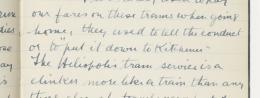 our fares on these trams when going
home, they used to tell the conduct
or to "put it down to Kitchener"
The Heliopolis train service is a
clinker more like a train than any